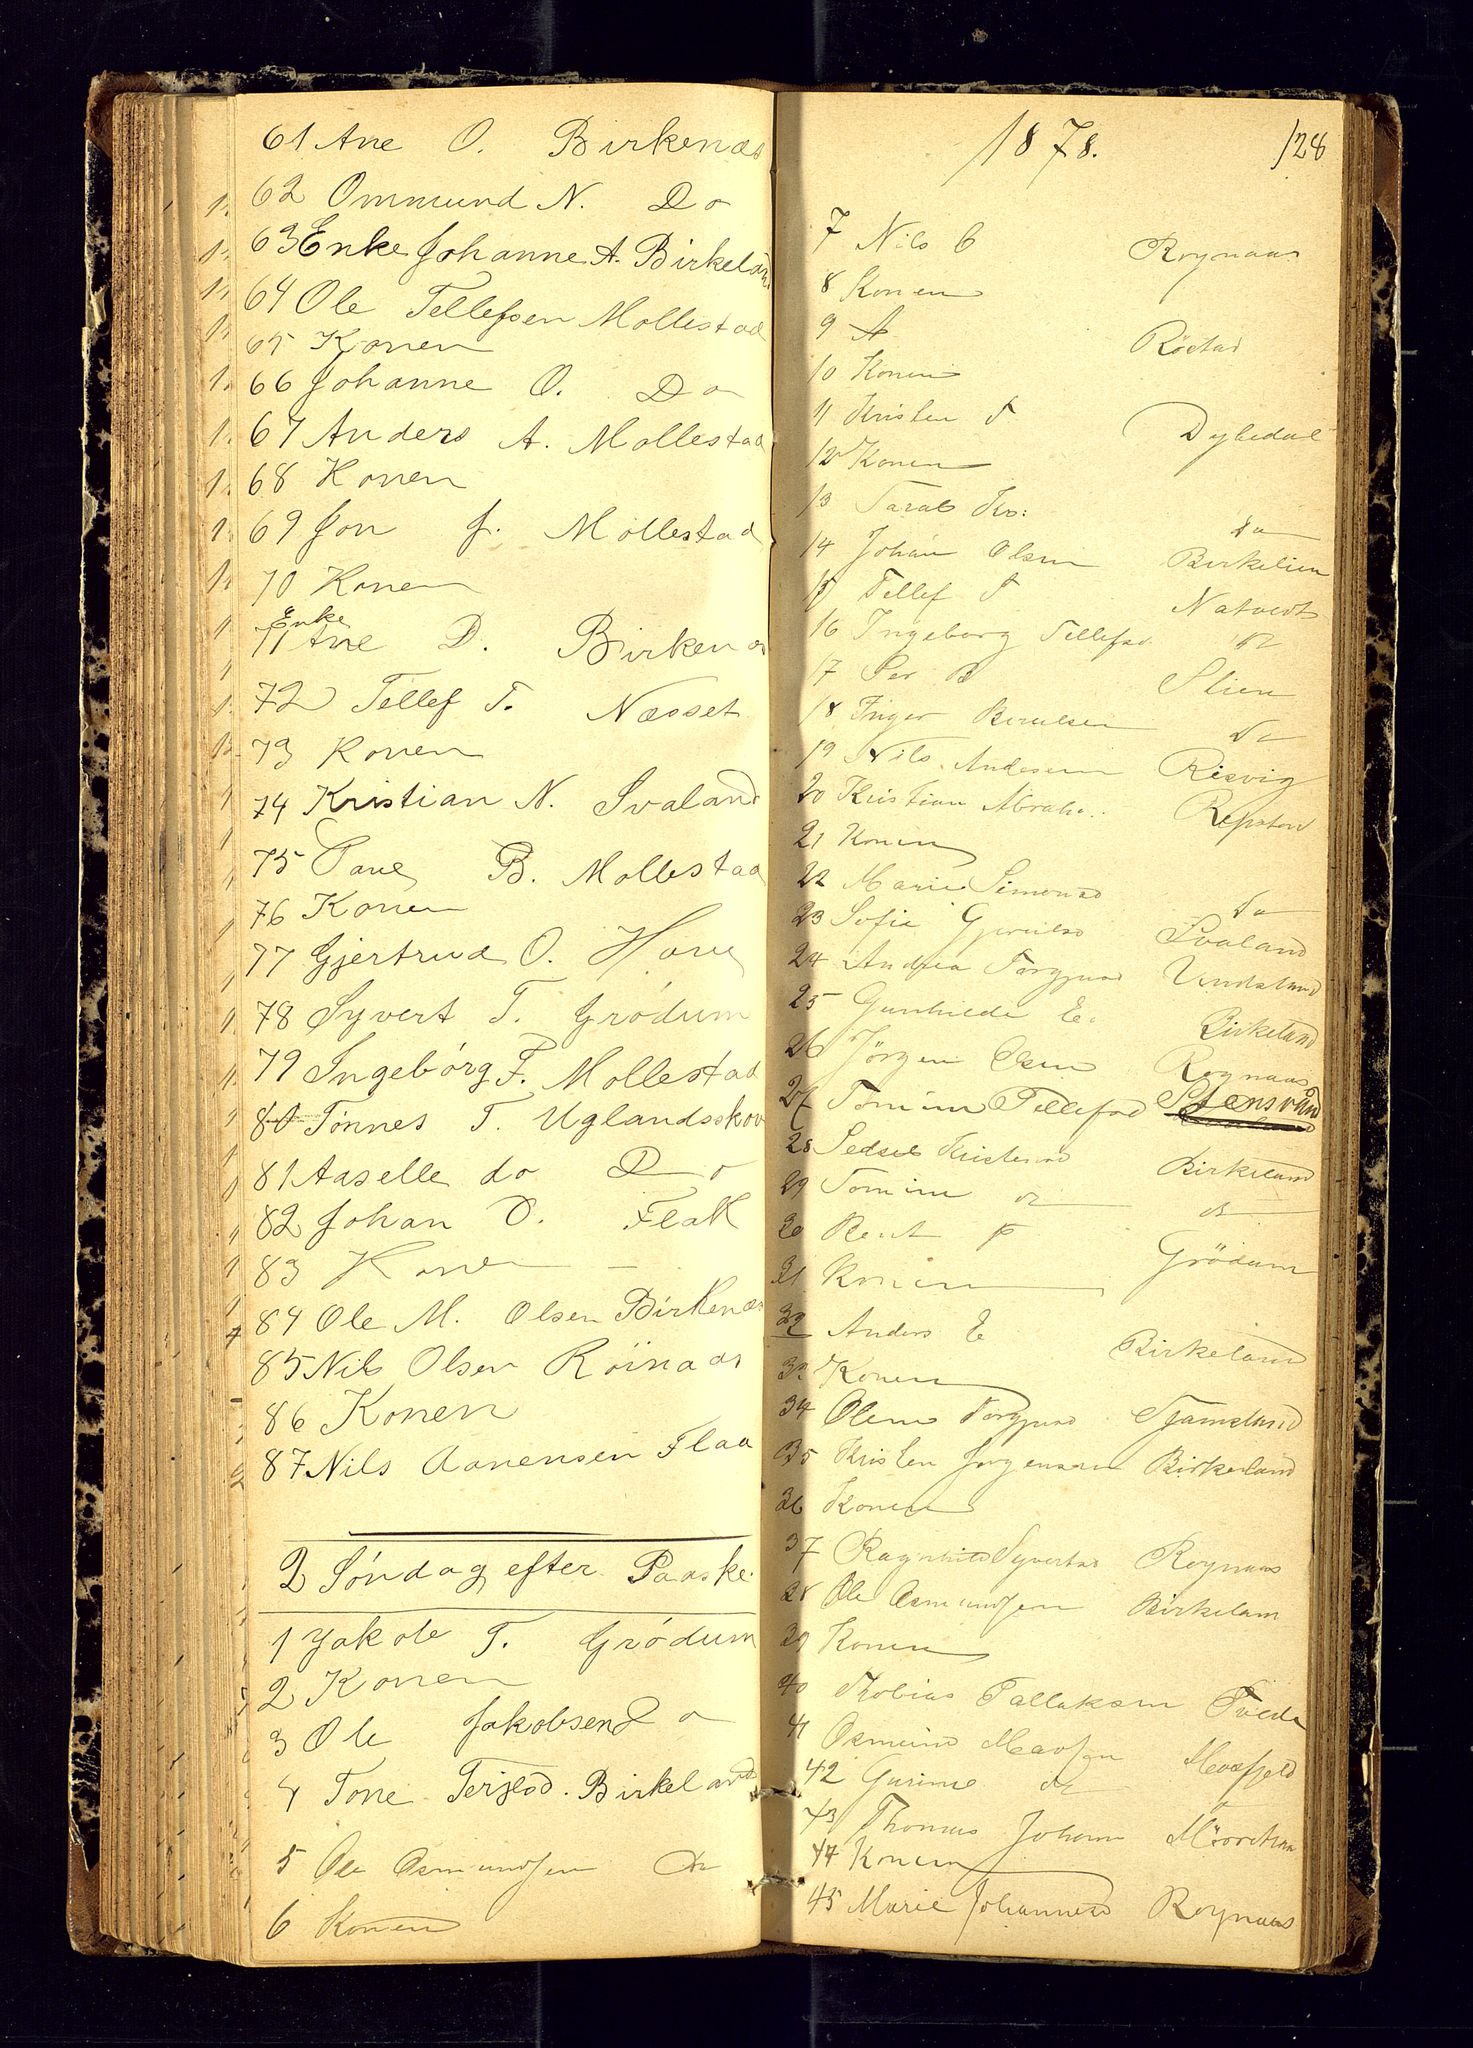 61 Ane O. Birkenæs
62 Ommund N. Do
63 Enke Johanne A. Birkeland
64 Ole Tellefsen Mollestad
65 Konen
66 Johanne O. Do
67 Anders A. Mollestad
68 Konen
69 Jon J. Mollestad
70 Konen
Enke
71 Ane D. Birkenæs
72 Tellef T. Næsset
73 Konen
74 Kristian N. Svaland
75 B. Mollestad
76 Konen
77 Gjertrud O. Hove
78 Syvert T. Grödum
79 Ingebórg F. Mollestad
80 Tønnes T. Uglandsskov
81 Aaselle do Do
82 Johan O. Flak
83 Konen
84 Ole M. Olsen Birkenæs
85 Nils Olsen Röinaas
86 Konen
87 Nils Aanensen Flaa
2 Söndag efter Paaske.
1 Jakob T. Grödum
2 Konen
3 Ole Jakobsen Do
4 Tone Terjesd. Birkeland
5 Ole Osmundsen do
6 Konen
1878. 128
7 Nils C Roynaas
8 Konen
9 A Röstad
10 Konen
11 Kristen T Dybedal
12 Konen
13 Taral Kr: Do
14 Johan Olsen Birkelien
15 Tellef T Natvedt
16 Ingeborg Tellefsd do
17 Per B Stien
18 Inger Do
19 Nils Andersen Risvig
20 Kristian Abrah. Repstad
21 Konen
22 Marie Simonsd Do
23 Sofie Svaland
24 Andrea Torgjusd Vindsland
25 Gunhilde E. Birkeland
26 Jörgen Olsen Roynaas
27 Tomine Tellefsd Stensvand
28 Sedsel Kristensd Birkeland
29 Tomine do do
30 Bent P Grödum
31 Konen
32 Anders E Birkeland
33 Konen
34 Olene Torgjusd Tjamsland
35 Kristen Jorgensen Birkeland
36 Konen
37 Ragnhild Syvertsd Roynaas
38 Ole Osmundsen Birkelan
39 Konen
40 Tobias Tallaksen Tveide
41 Osmund
42 Gurine do
43 Thomas Johan
44 Konen
45 Marie Johannesd Roynaas